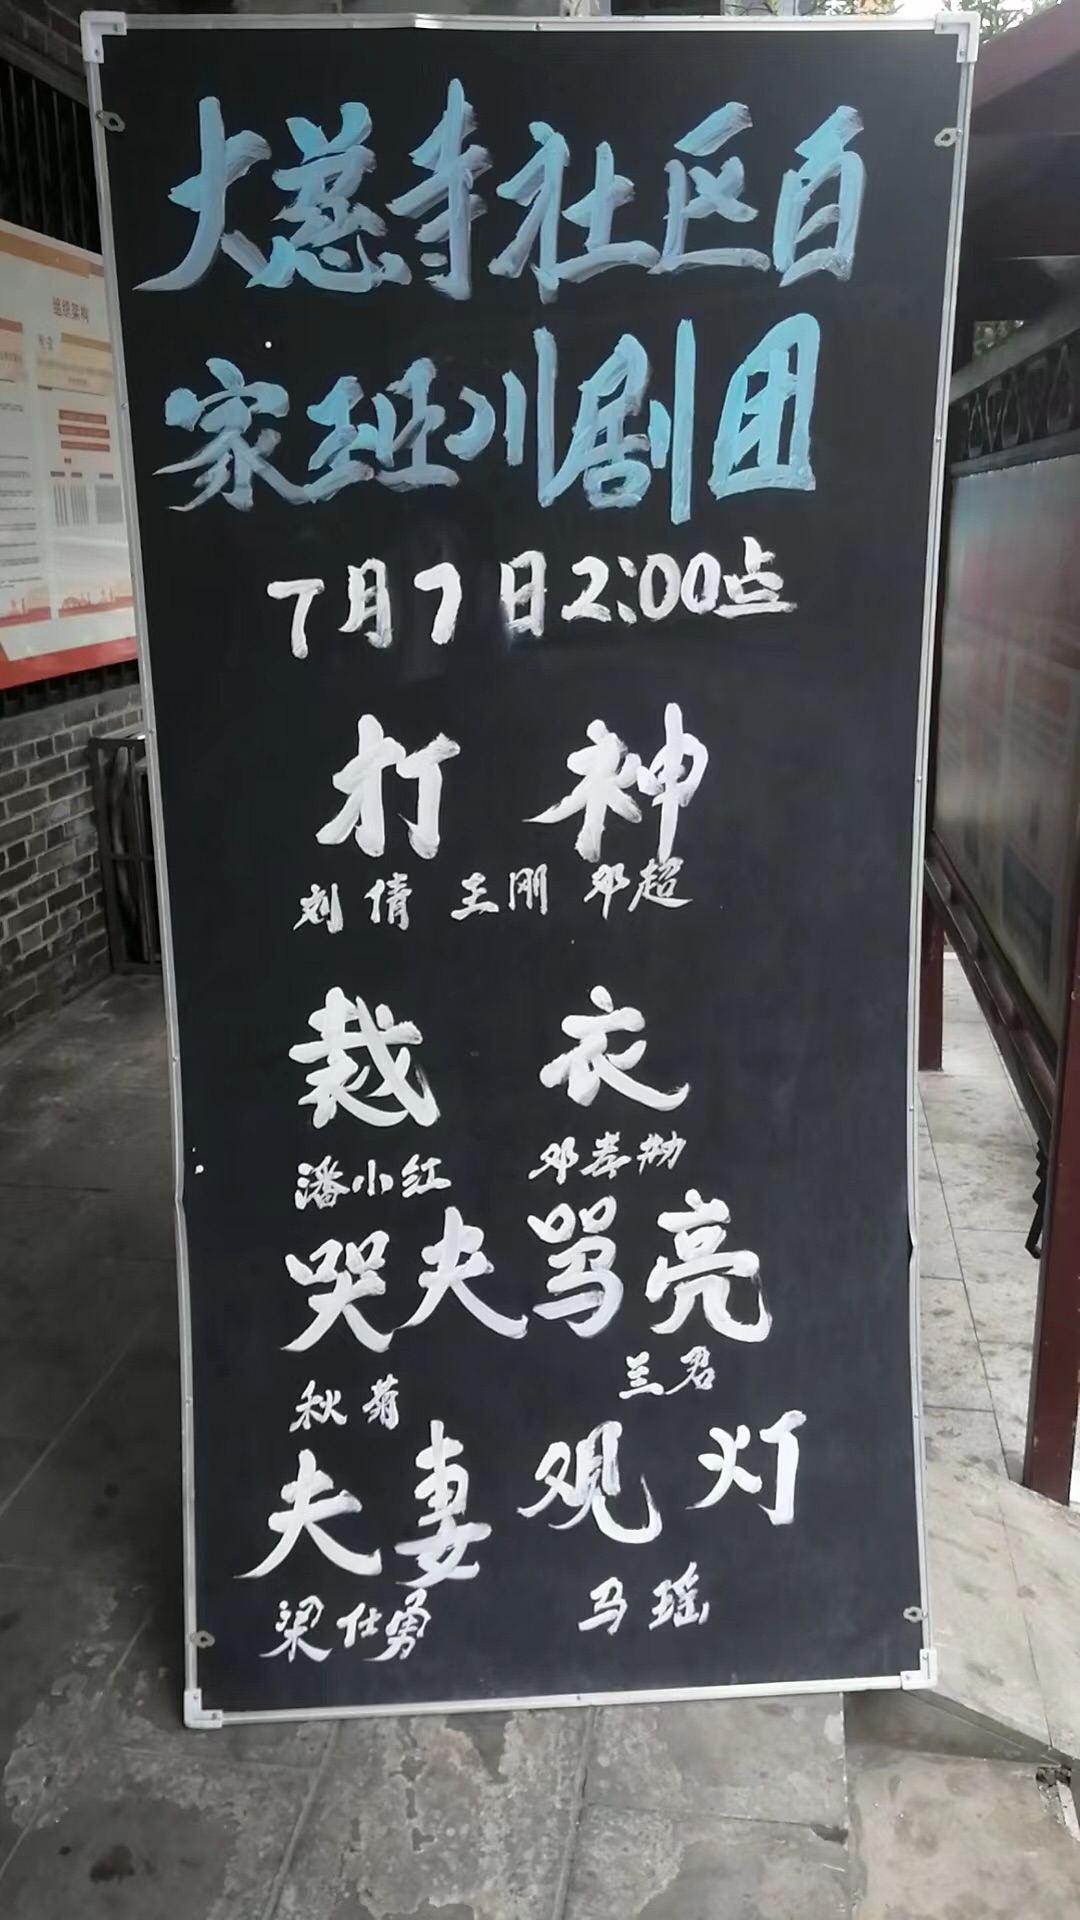 大慈寺社区百
家班川剧团
7月7日2:00点
打 神
刘倩 王刚 邓超
裁 衣
潘小红 邓孝
哭夫骂亮
秋菊 兰君
夫妻观灯
梁仕勇 马瑶
组织架构